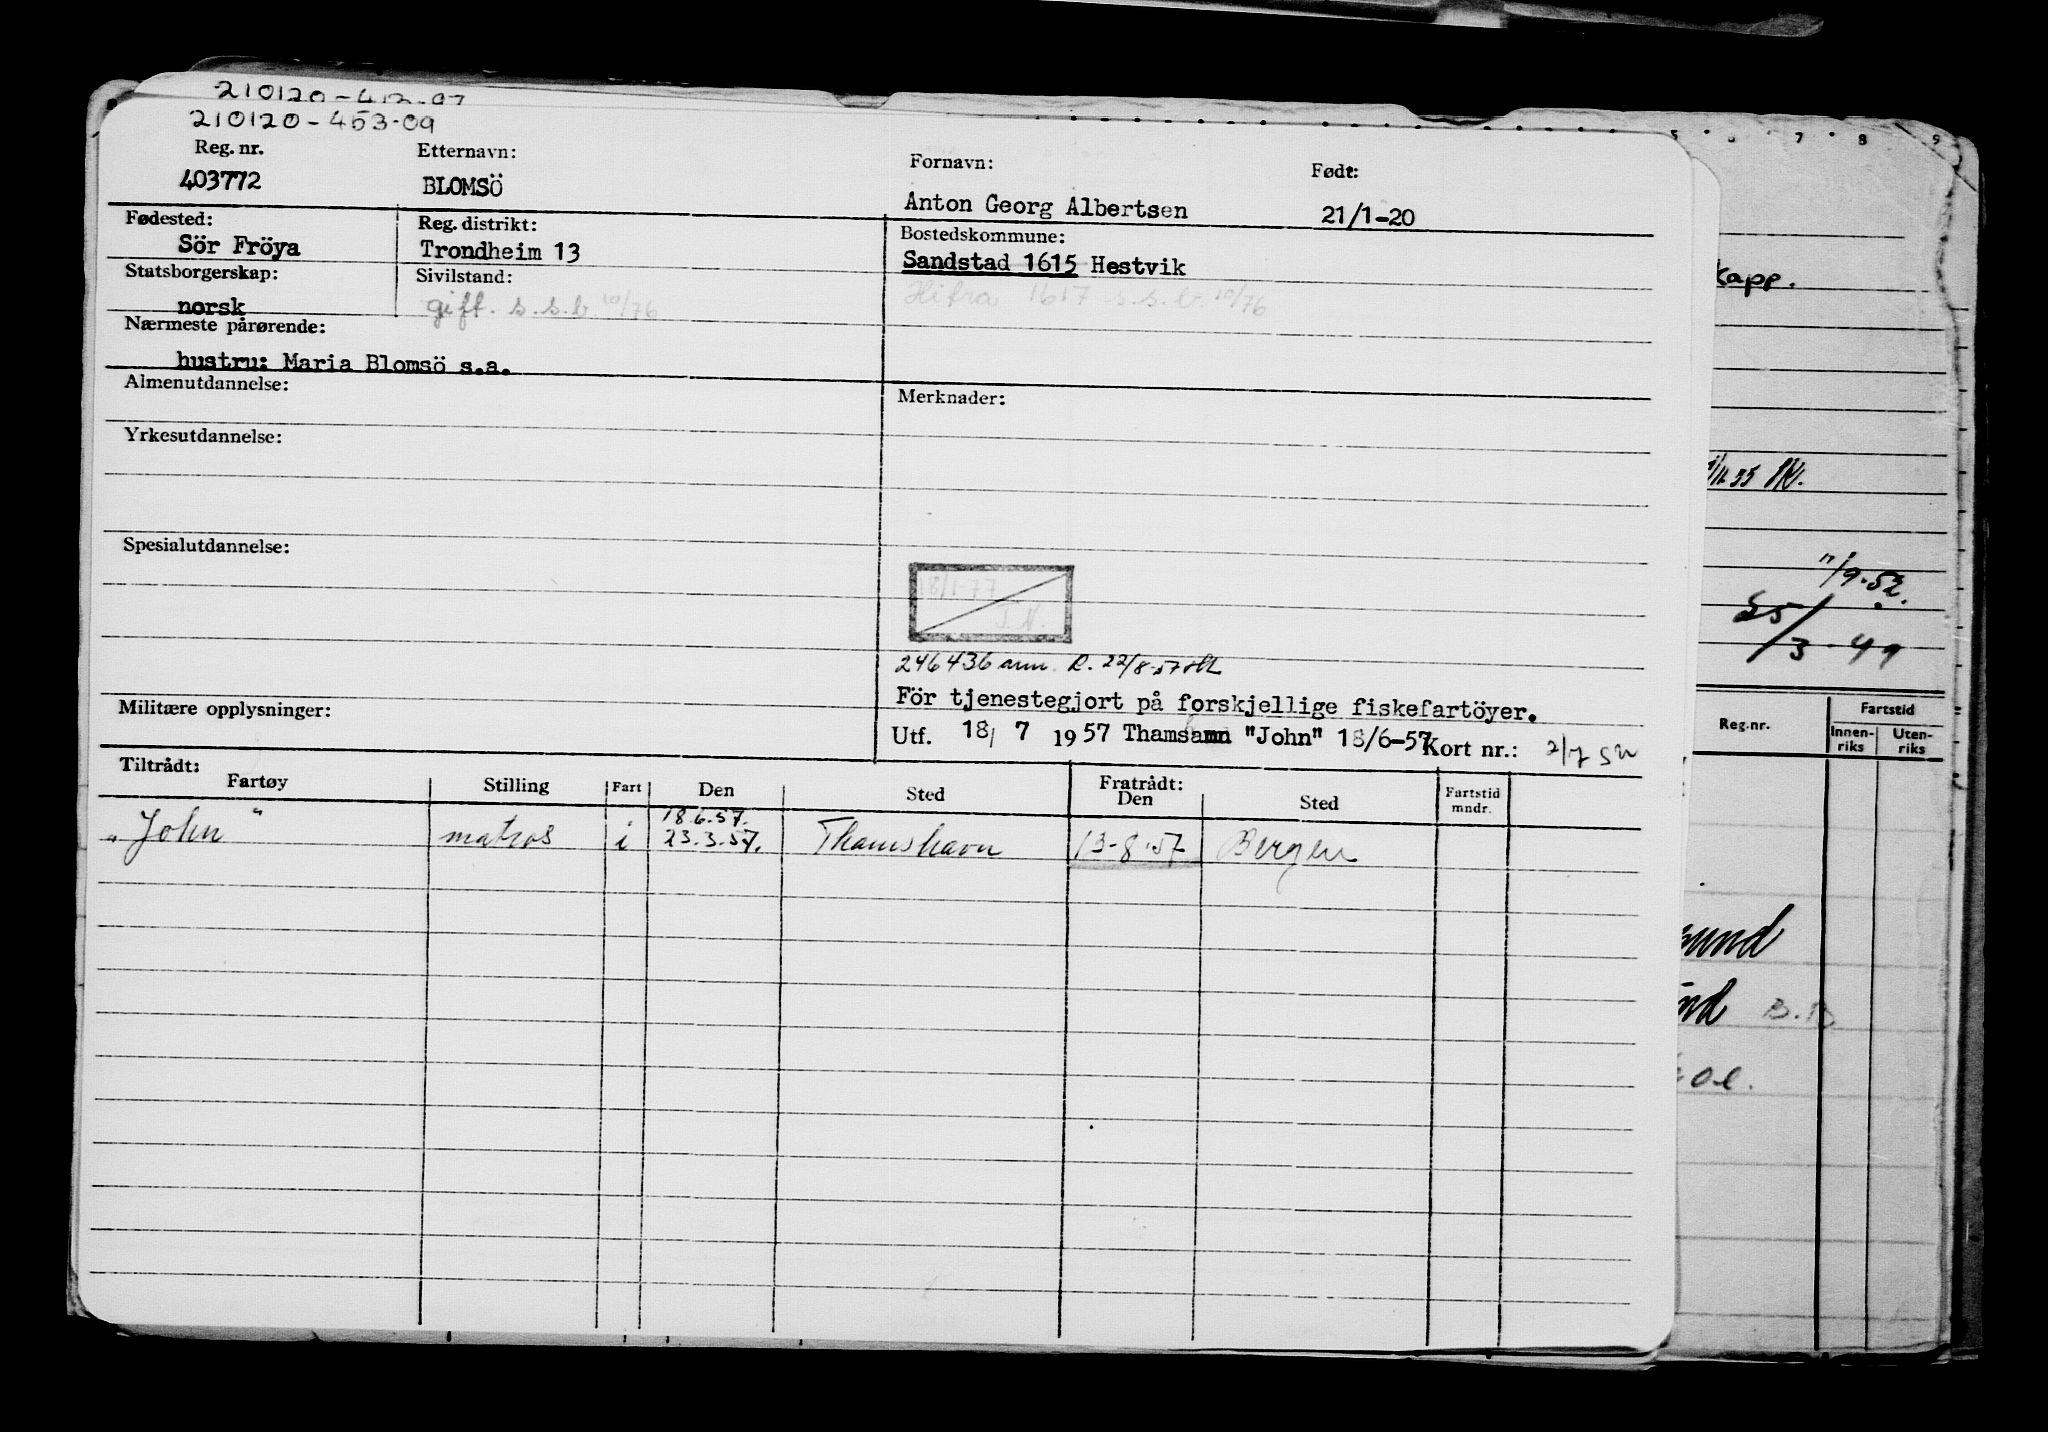 210120-453-09
Reg. nr. Etternavn: Fornavn: Født:
403772 BLOMSÖ Anton Georg Albertsen 21/1-20
Fødested: Reg. distrikt: Bostedskommune:
Sör Fröya Trondheim 13 Sandstad 1615 Hestvik
Statsborgerskap: Sivilstand:
norsk gift. s.s.b. 10/76 Hitra 1617 s.s.b. 10/76
Nærmeste pårørende:
hustru: Maria Blomsö s.a.
Almenutdannelse: Merknader:
Yrkesutdannelse:
Spesialutdannelse:
18/1-77
246436 ann. R. 22/8-57
För tjenestegjort på forskjellige fiskefartöyer.
Militære opplysninger:
Utf. 18/ 7 1957 "John" 18/6-57 Kort nr.: 2/7 SN
Tiltrådt: Fratrådt:
Fartøy Stilling Fart Den Sted Den Sted Fartstid mndr.
18.6.57.
"John" matros i 23.3.57. Thamshavn 13-8-57 Bergen
5 6 7 8 9
kapp.
11/9.52.
25/3-49
Reg.nr. Fartstid
Innen-riks Uten-riks
B.B